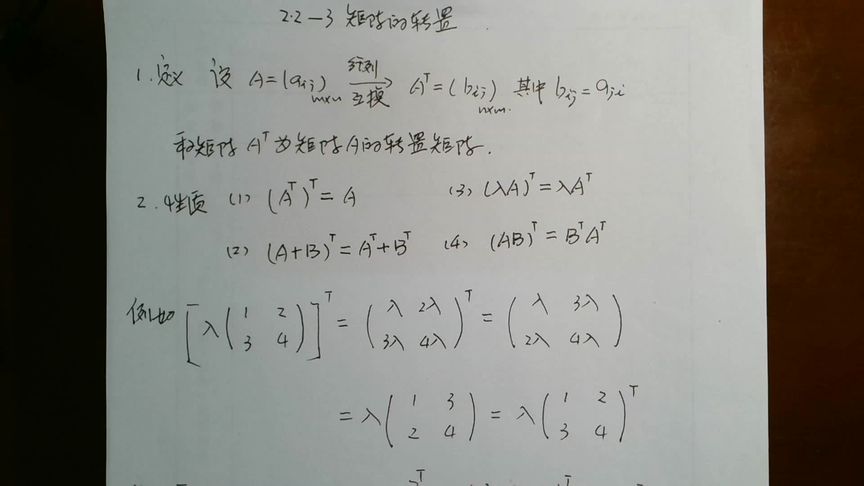 2.2-3 矩阵的转置
1.定义 设 A=(aij)m×n 行列互换→ Aᵀ=(bij)n×m. 其中 bij=aji
称矩阵 Aᵀ 为矩阵A的转置矩阵.
2.性质 (1) (Aᵀ)ᵀ=A (3) (λA)ᵀ=λAᵀ
(2) (A+B)ᵀ=Aᵀ+Bᵀ (4) (AB)ᵀ=BᵀAᵀ
例如 [λ(1 2; 3 4)]ᵀ = (λ 2λ; 3λ 4λ)ᵀ = (λ 3λ; 2λ 4λ)
= λ(1 3; 2 4) = λ(1 2; 3 4)ᵀ